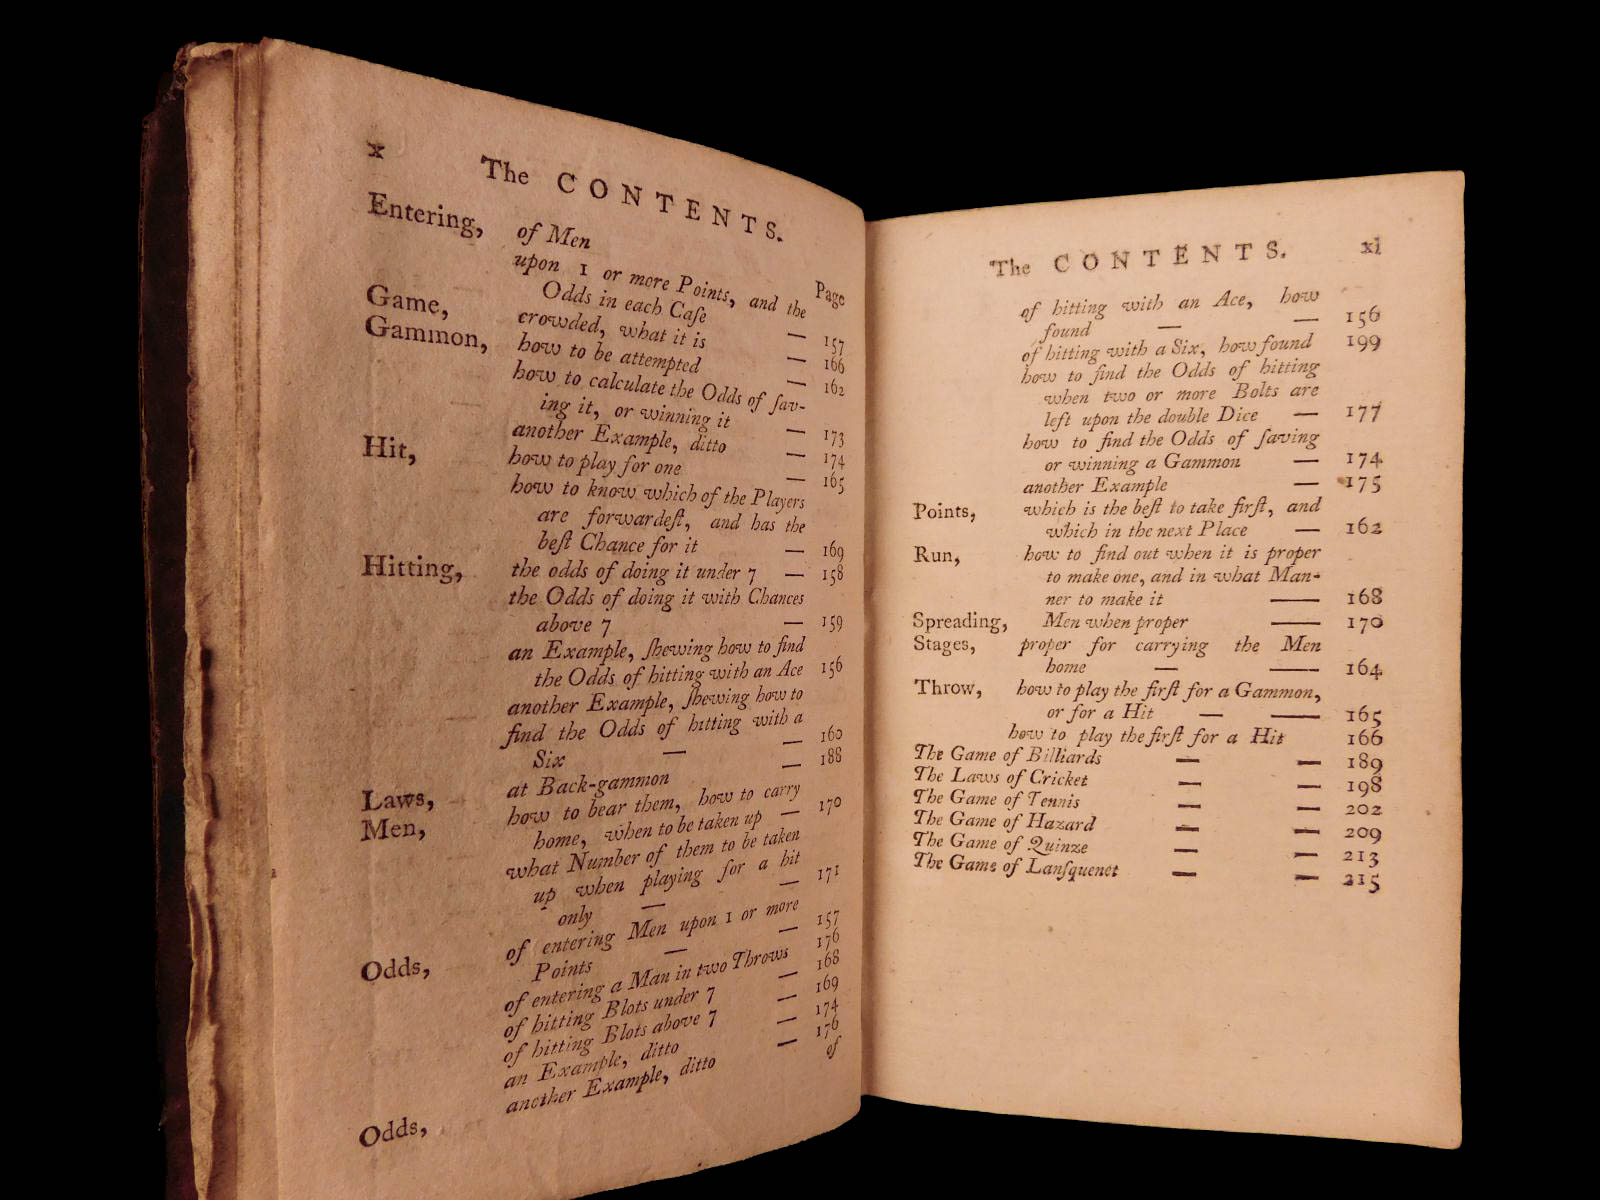 x
The CONTENTS.
Page
Entering, of Men
upon 1 or more Points, and the
Odds in each Caſe — 157
Game, crowded, what it is — 166
Gammon, how to be attempted — 162
how to calculate the Odds of ſav-
ing it, or winning it — 173
another Example, ditto — 174
Hit, how to play for one — 165
how to know which of the Players
are forwardeſt, and has the
beſt Chance for it — 169
Hitting, the odds of doing it under 7 — 158
the Odds of doing it with Chances
above 7 — 159
an Example, ſhewing how to find
the Odds of hitting with an Ace 156
another Example, ſhewing how to
find the Odds of hitting with a
Six — — 160
Laws, at Back-gammon — 188
Men, how to bear them, how to carry
home, when to be taken up — 170
what Number of them to be taken
up when playing for a hit
only — — 171
Odds, of entering Men upon 1 or more
Points — — 157
of entering a Man in two Throws 176
of hitting Blots under 7 — 168
of hitting Blots above 7 — 169
an Example, ditto — 174
another Example, ditto — 176
Odds, of
The CONTENTS. xi
of hitting with an Ace, how
found — — 156
of hitting with a Six, how found 199
how to find the Odds of hitting
when two or more Bolts are
left upon the double Dice — 177
how to find the Odds of ſaving
or winning a Gammon — 174
another Example — 175
Points, which is the beſt to take firſt, and
which in the next Place — 162
Run, how to find out when it is proper
to make one, and in what Man-
ner to make it — 168
Spreading, Men when proper — 170
Stages, proper for carrying the Men
home — — 164
Throw, how to play the firſt for a Gammon,
or for a Hit — — 165
how to play the firſt for a Hit 166
The Game of Billiards — — 189
The Laws of Cricket — — 198
The Game of Tennis — — 202
The Game of Hazard — — 209
The Game of Quinze — — 213
The Game of Lanſquenet — — 215